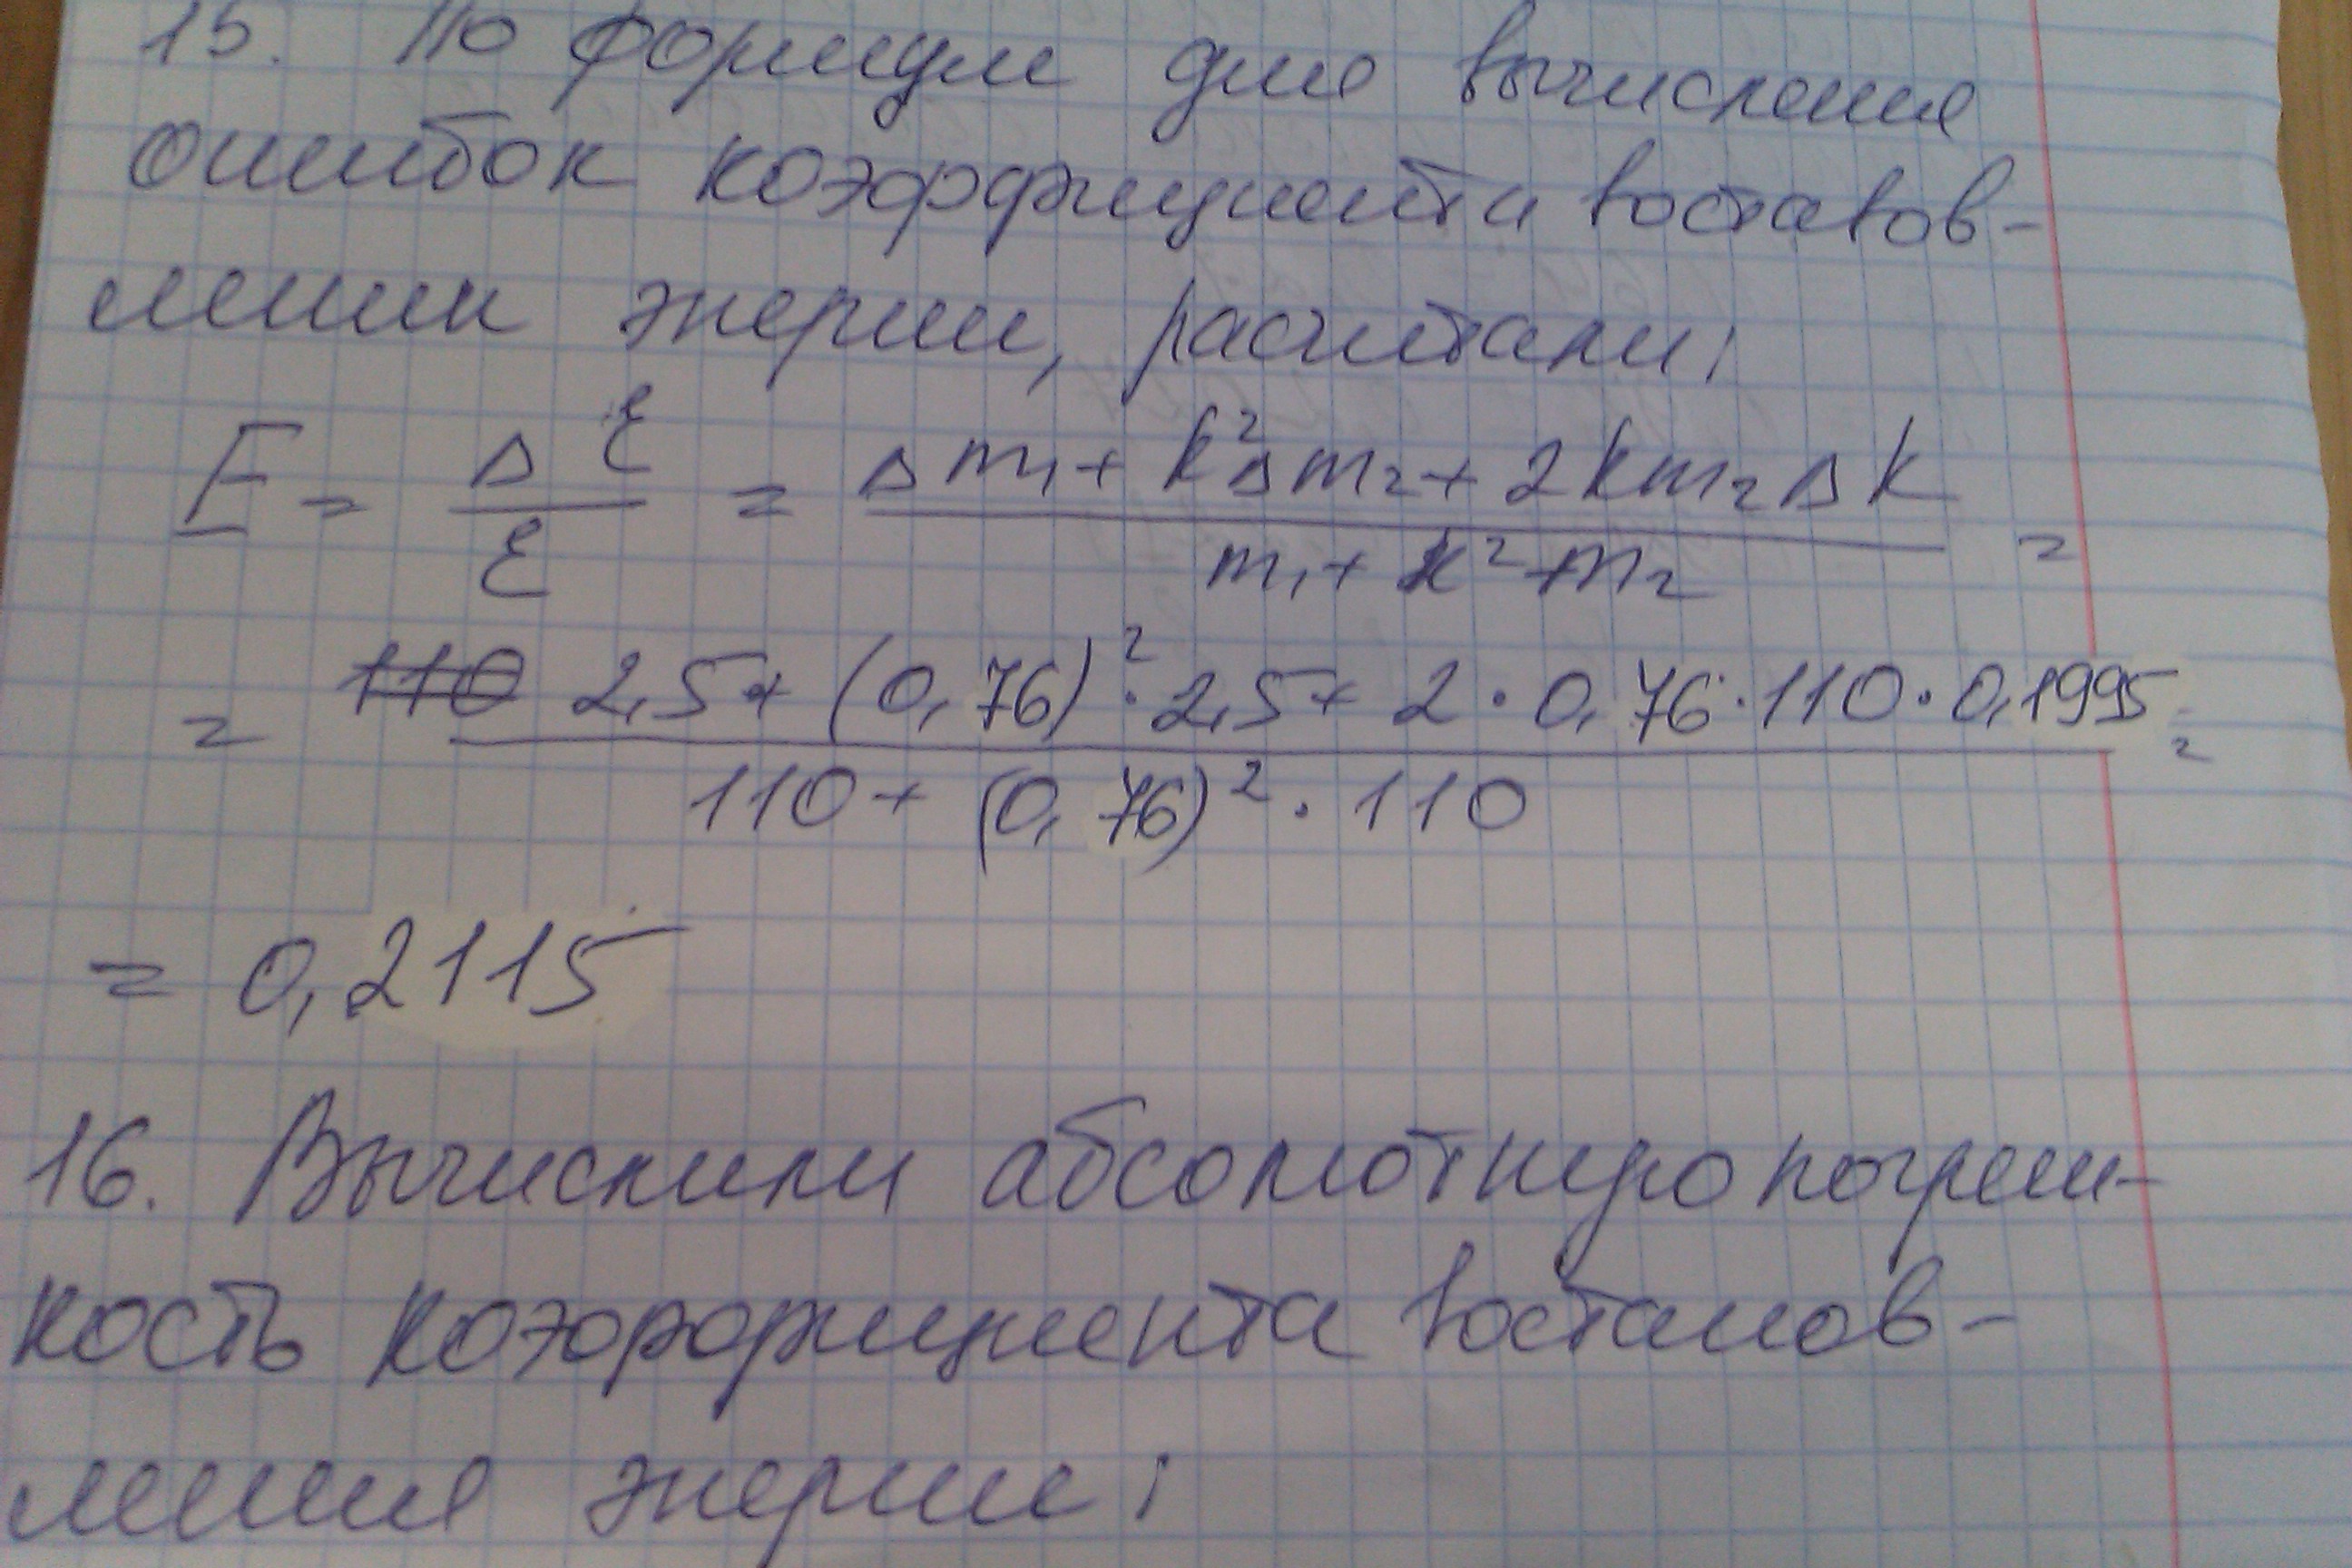 15. По формуле для вычисления
ошибок коэффициента востанов-
лении энергии, расчитали:
E = Δε/ε = (Δm₁ + k²Δm₂ + 2km₂Δk)/(m₁ + k² + m₂) =
= (2,5 + (0,76)² · 2,5 + 2 · 0,76 · 110 · 0,1995)/(110 + (0,76)² · 110) =
= 0,2115
16. Вычислили абсолютную погреш-
ность коэффициента востанов-
ления энергии: